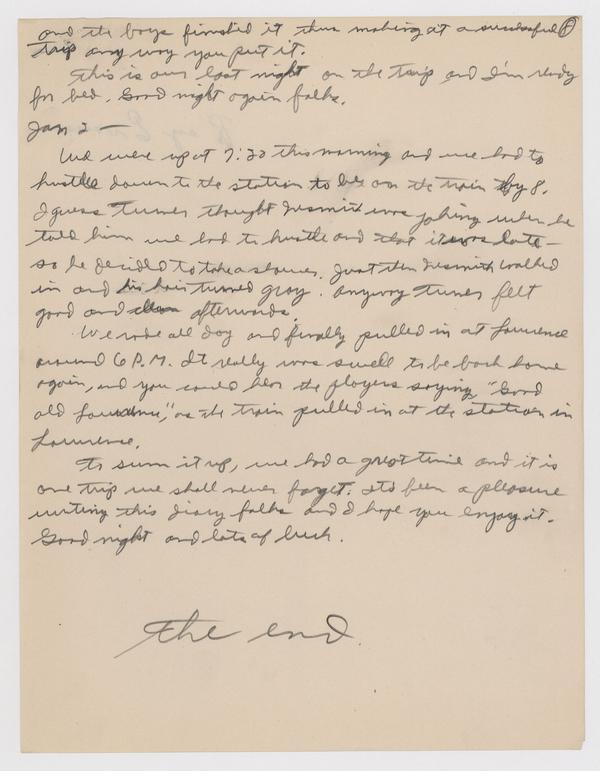 and the boys finished it thus making it a successful
trip any way you put it.
This is our last night on the trip and I'm ready
for bed. Good night again folks.
Jan 2 —
We were up at 7:30 this morning and we had to
hustle down to the station to be on the train by 8.
I guess Turner thought Nesmith was joking when he
told him we had to hustle and that it was late —
so he decided to take a shower. Just then Nesmith walked
in and his hair turned gray. Anyway Turner felt
good and clean afterwards.
We rode all day and finally pulled in at Lawrence
around 6 P.M. It really was swell to be back home
again, and you could hear the players saying "Good
old Lawrence," as the train pulled in at the station in
Lawrence.
To sum it up, we had a great time and it is
one trip we shall never forget. It's been a pleasure
writing this diary folks and I hope you enjoy it.
Good night and lots of luck.
The end.